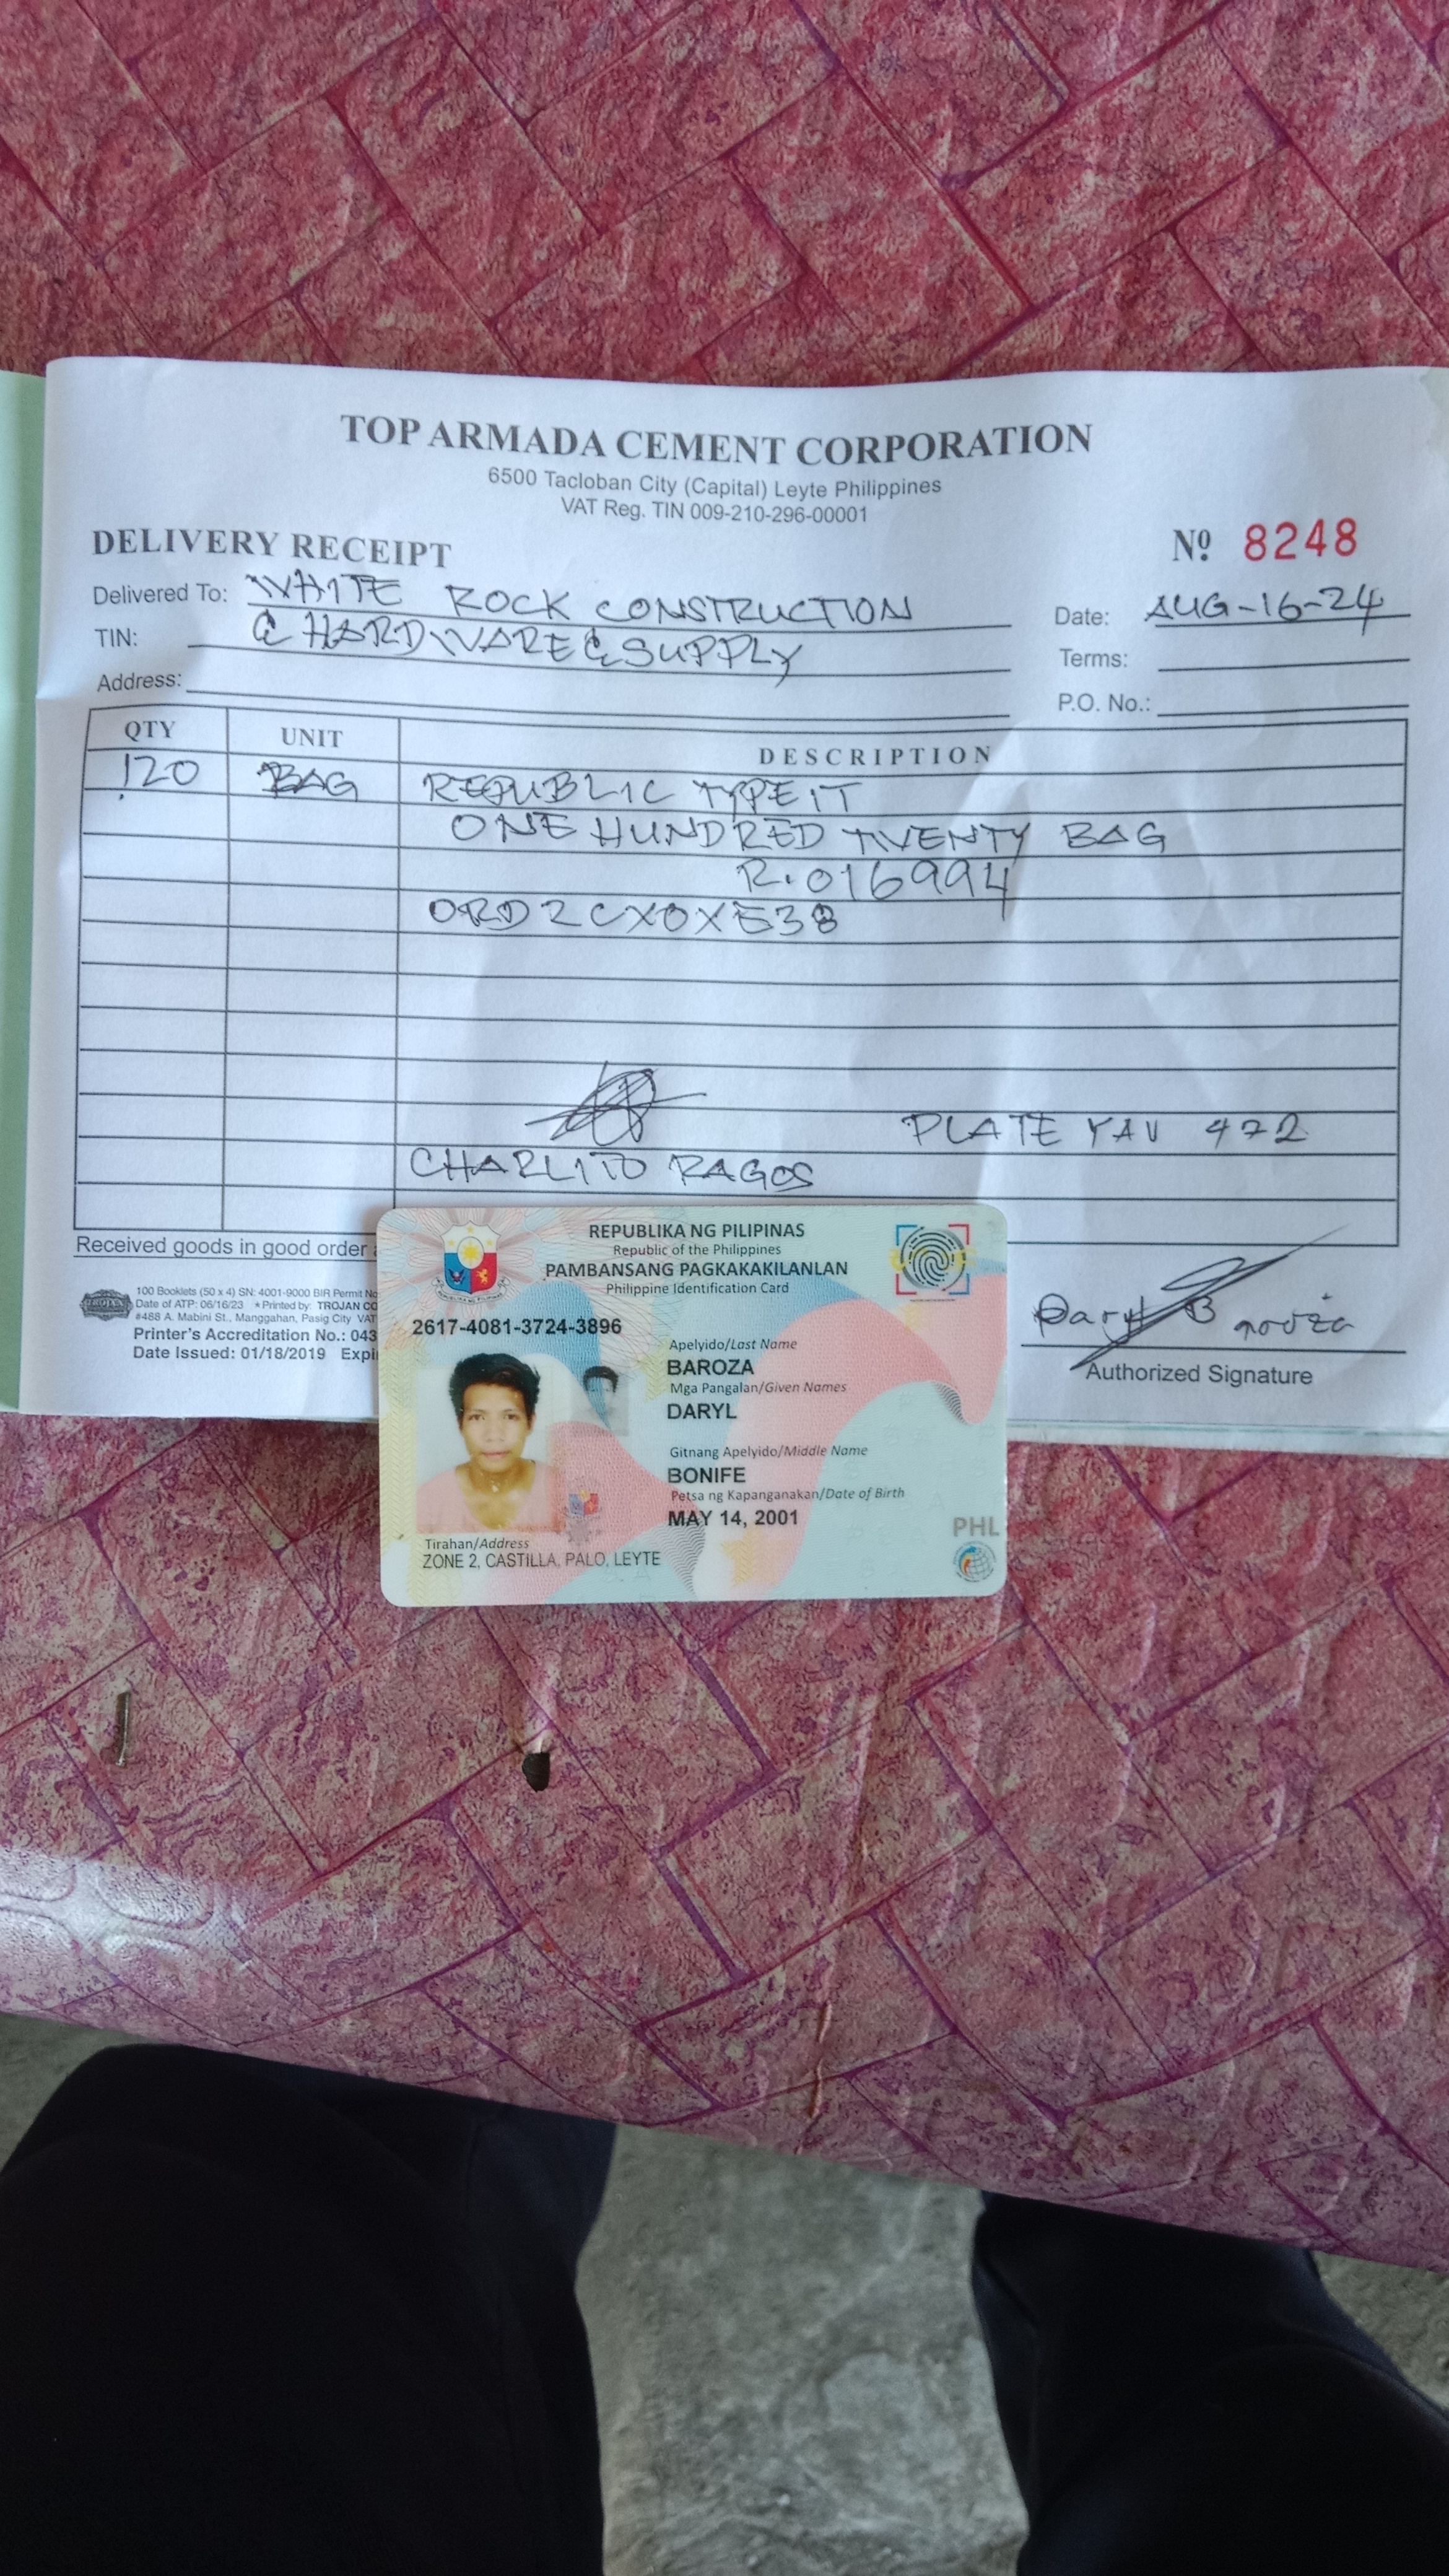 TOP ARMADA CEMENT CORPORATION
6500 Tacloban City (Capital) Leyte Philippines
VAT Reg. TIN 009-210-296-00001
DELIVERY RECEIPT
Nº 8248
Delivered To: WHITE ROCK CONSTRUCTION
Date: AUG-16-24
TIN: & HARDWARE & SUPPLY
Terms:
Address:
P.O. No.:
QTY UNIT DESCRIPTION
120 BAG REPUBLIC TYPE 1T
ONE HUNDRED TWENTY BAG
R.016994
ORD2CX0X538
PLATE YAV 472
CHARLITO RAGOS
Received goods in good order
100 Booklets (50 x 4) SN: 4001-9000 BIR Permit No
Date of ATP: 06/16/23 * Printed by: TROJAN CO
#488 A. Mabini St., Manggahan, Pasig City VAT
Printer's Accreditation No.: 043
Date Issued: 01/18/2019 Expi
Daryl B
Authorized Signature
REPUBLIKA NG PILIPINAS
Republic of the Philippines
PAMBANSANG PAGKAKAKILANLAN
Philippine Identification Card
2617-4081-3724-3896
Apelyido/Last Name
BAROZA
Mga Pangalan/Given Names
DARYL
Gitnang Apelyido/Middle Name
BONIFE
Petsa ng Kapanganakan/Date of Birth
MAY 14, 2001
PHL
Tirahan/Address
ZONE 2, CASTILLA, PALO, LEYTE